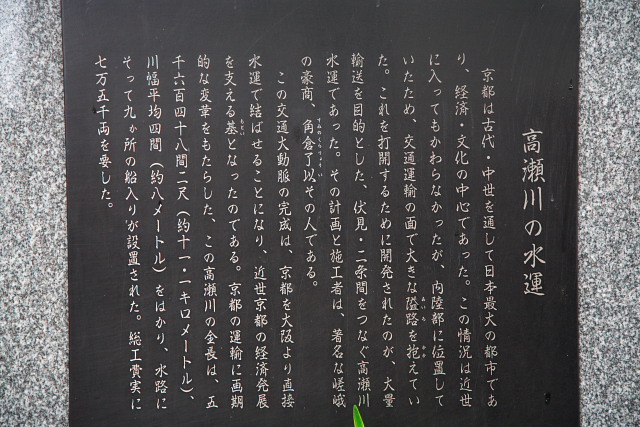 高瀬川の水運
京都は古代・中世を通して日本最大の都市であ
り、経済・文化の中心であった。この情況は近世
に入ってもかわらなかったが、内陸部に位置して
いたため、交通運輸の面で大きな隘路を抱えてい
た。これを打開するために開発されたのが、大量
輸送を目的とした、伏見・二条間をつなぐ高瀬川
水運であった。その計画と施工者は、著名な嵯峨
の豪商、角倉了以その人である。
この交通大動脈の完成は、京都を大阪より直接
水運で結ばせることになり、近世京都の経済発展
を支える基となったのである。京都の運輸に画期
的な変革をもたらした、この高瀬川の全長は、五
千六百四十八間二尺（約十一・一キロメートル）、
川幅平均四間（約八メートル）をはかり、水路に
そって九ヵ所の船入りが設置された。総工費実に
七万五千両を要した。